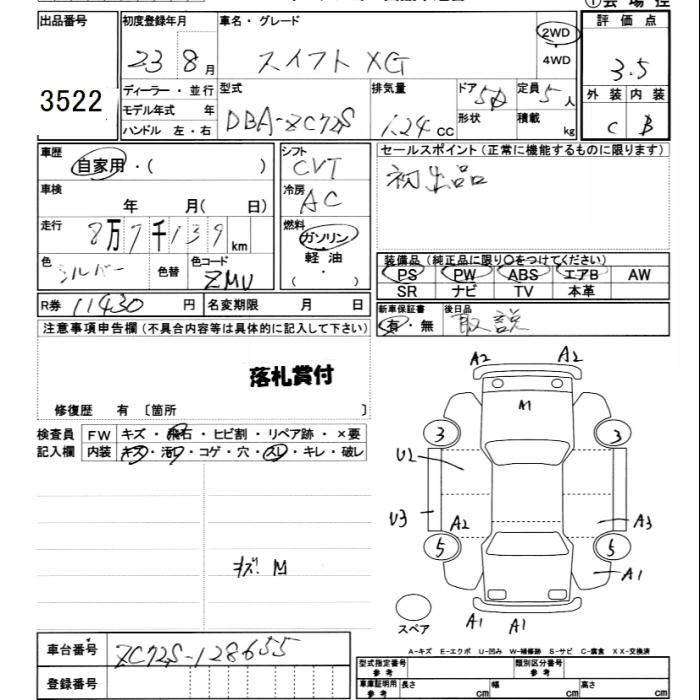 ①会場控
出品番号 3522
初度登録年月 23 8月
車名・グレード スイフト XG
2WD
4WD
評価点 3.5
外装 内装
C B
ディーラー・並行
モデル年式 年
ハンドル 左・右
型式 DBA-ZC72S
排気量 1.24 cc
ドア 5D
形状
定員 5人
積載 kg
車歴 自家用・( )
シフト CVT
セールスポイント(正常に機能するものに限ります)
初出品
車検 年 月( 日)
冷房 AC
走行 8万7千139km
燃料 ガソリン
軽油
( ・ )
色 シルバー 色替 色コード ZMU
装備品(純正品に限り○をつけてください)
PS PW ABS エアB AW
SR ナビ TV 本革
R券 11430円 名変期限 月 日
新車保証書 有・無
後日品 取説
注意事項申告欄(不具合内容等は具体的に記入して下さい)
落札賞付
修復歴 有〔箇所 〕
検査員 FW キズ・飛石・ヒビ割・リペア跡・×要
記入欄 内装 キズ・汚れ・コゲ・穴・スレ・キレ・破レ
A2 A2
A1
3 3
U2
U3 A2 A3
5 5
A1
キズ M
スペア
A1 A1
車台番号 ZC72S-128655
登録番号
A-キズ E-エクボ U-凹み W-補修跡 S-サビ C-腐食 XX-交換済
型式指定番号 参考 類別区分番号 参考
車庫証明用 参考 長さ cm 幅 cm 高さ cm